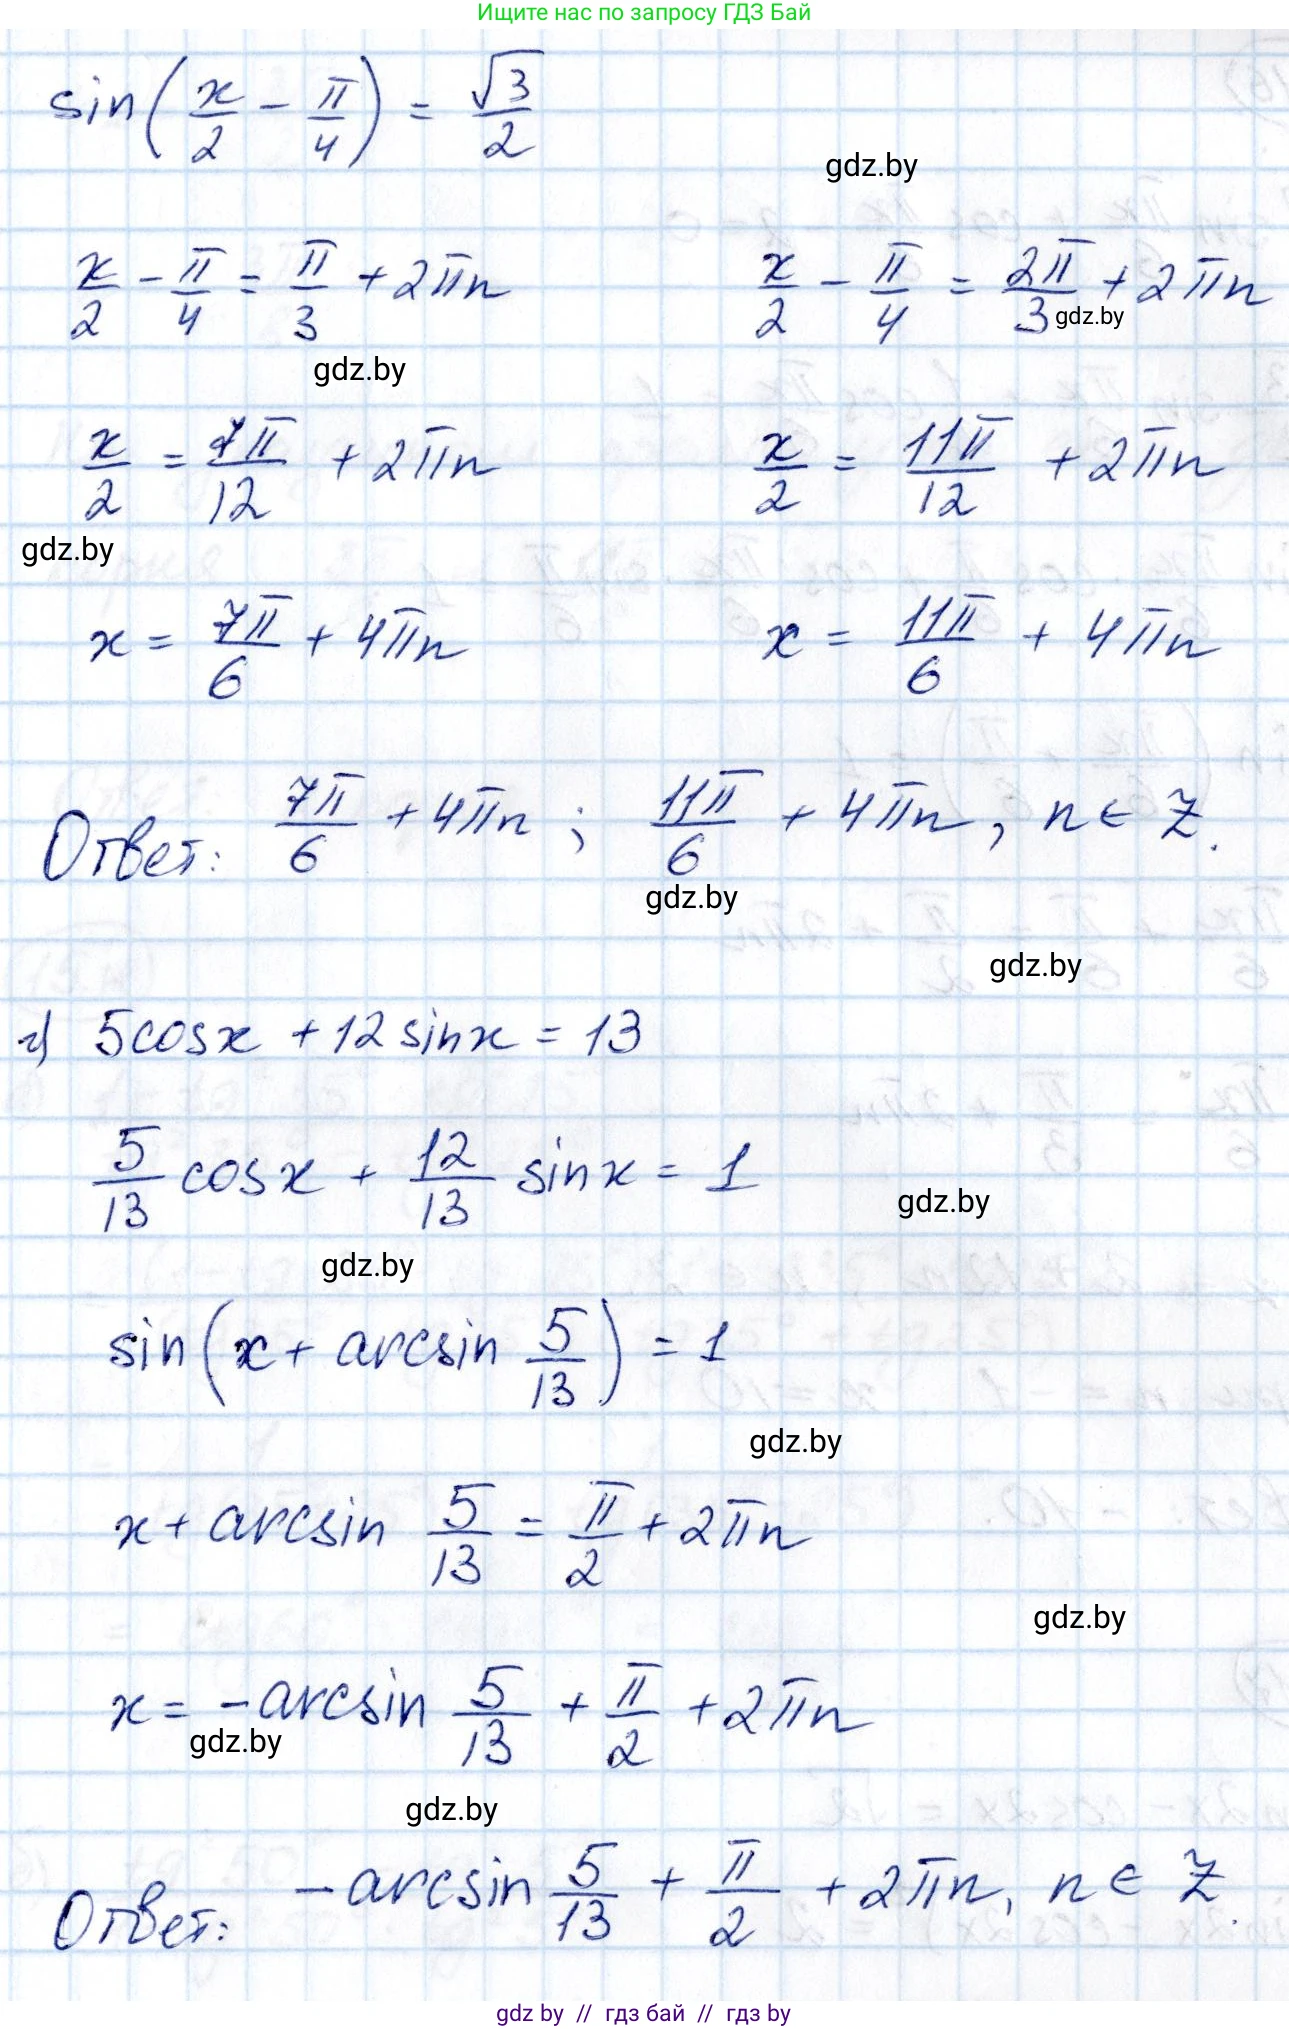 Ищите нас по запросу ГДЗ Бай
sin(x/2 - π/4) = √3/2
gdz.by
x/2 - π/4 = π/3 + 2πn    x/2 - π/4 = 2π/3 + 2πn
gdz.by
gdz.by
x/2 = 7π/12 + 2πn    x/2 = 11π/12 + 2πn
gdz.by
x = 7π/6 + 4πn    x = 11π/6 + 4πn
Ответ: 7π/6 + 4πn ; 11π/6 + 4πn, n ∈ Z.
gdz.by
gdz.by
г) 5cosx + 12sinx = 13
5/13 cosx + 12/13 sinx = 1
gdz.by
gdz.by
sin(x + arcsin 5/13) = 1
gdz.by
x + arcsin 5/13 = π/2 + 2πn
gdz.by
x = -arcsin 5/13 + π/2 + 2πn
gdz.by
gdz.by
Ответ: -arcsin 5/13 + π/2 + 2πn, n ∈ Z.
gdz by // гдз бай // гдз by